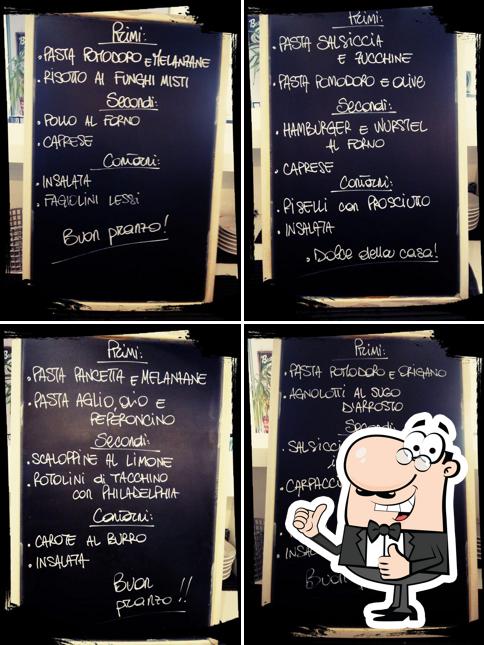 Primi:
• PASTA POMODORO E MELANZANE
• RISOTTO AI FUNGHI MISTI
Secondi:
• POLLO AL FORNO
• CAPRESE
Contorni:
• INSALATA
• FAGIOLINI LESSI
Buon pranzo!
Primi:
• PASTA SALSICCIA
E ZUCCHINE
• PASTA POMODORO E OLIVE
Secondi:
• HAMBURGER E WURSTEL
AL FORNO
• CAPRESE
Contorni:
• PISELLI con PROSCIUTTO
• INSALATA
• Dolce della casa!
Primi:
• PASTA PANCETTA E MELANZANE
• PASTA AGLIO, OLIO E
PEPERONCINO
Secondi:
• SCALOPPINE AL LIMONE
• ROTOLINI di TACCHINO
con PHILADELPHIA
Contorni:
• CAROTE AL BURRO
• INSALATA
Buon
pranzo!!
Primi:
• PASTA POMODORO E ORIGANO
• AGNOLOTTI AL SUGO
D'ARROSTO
Secondi